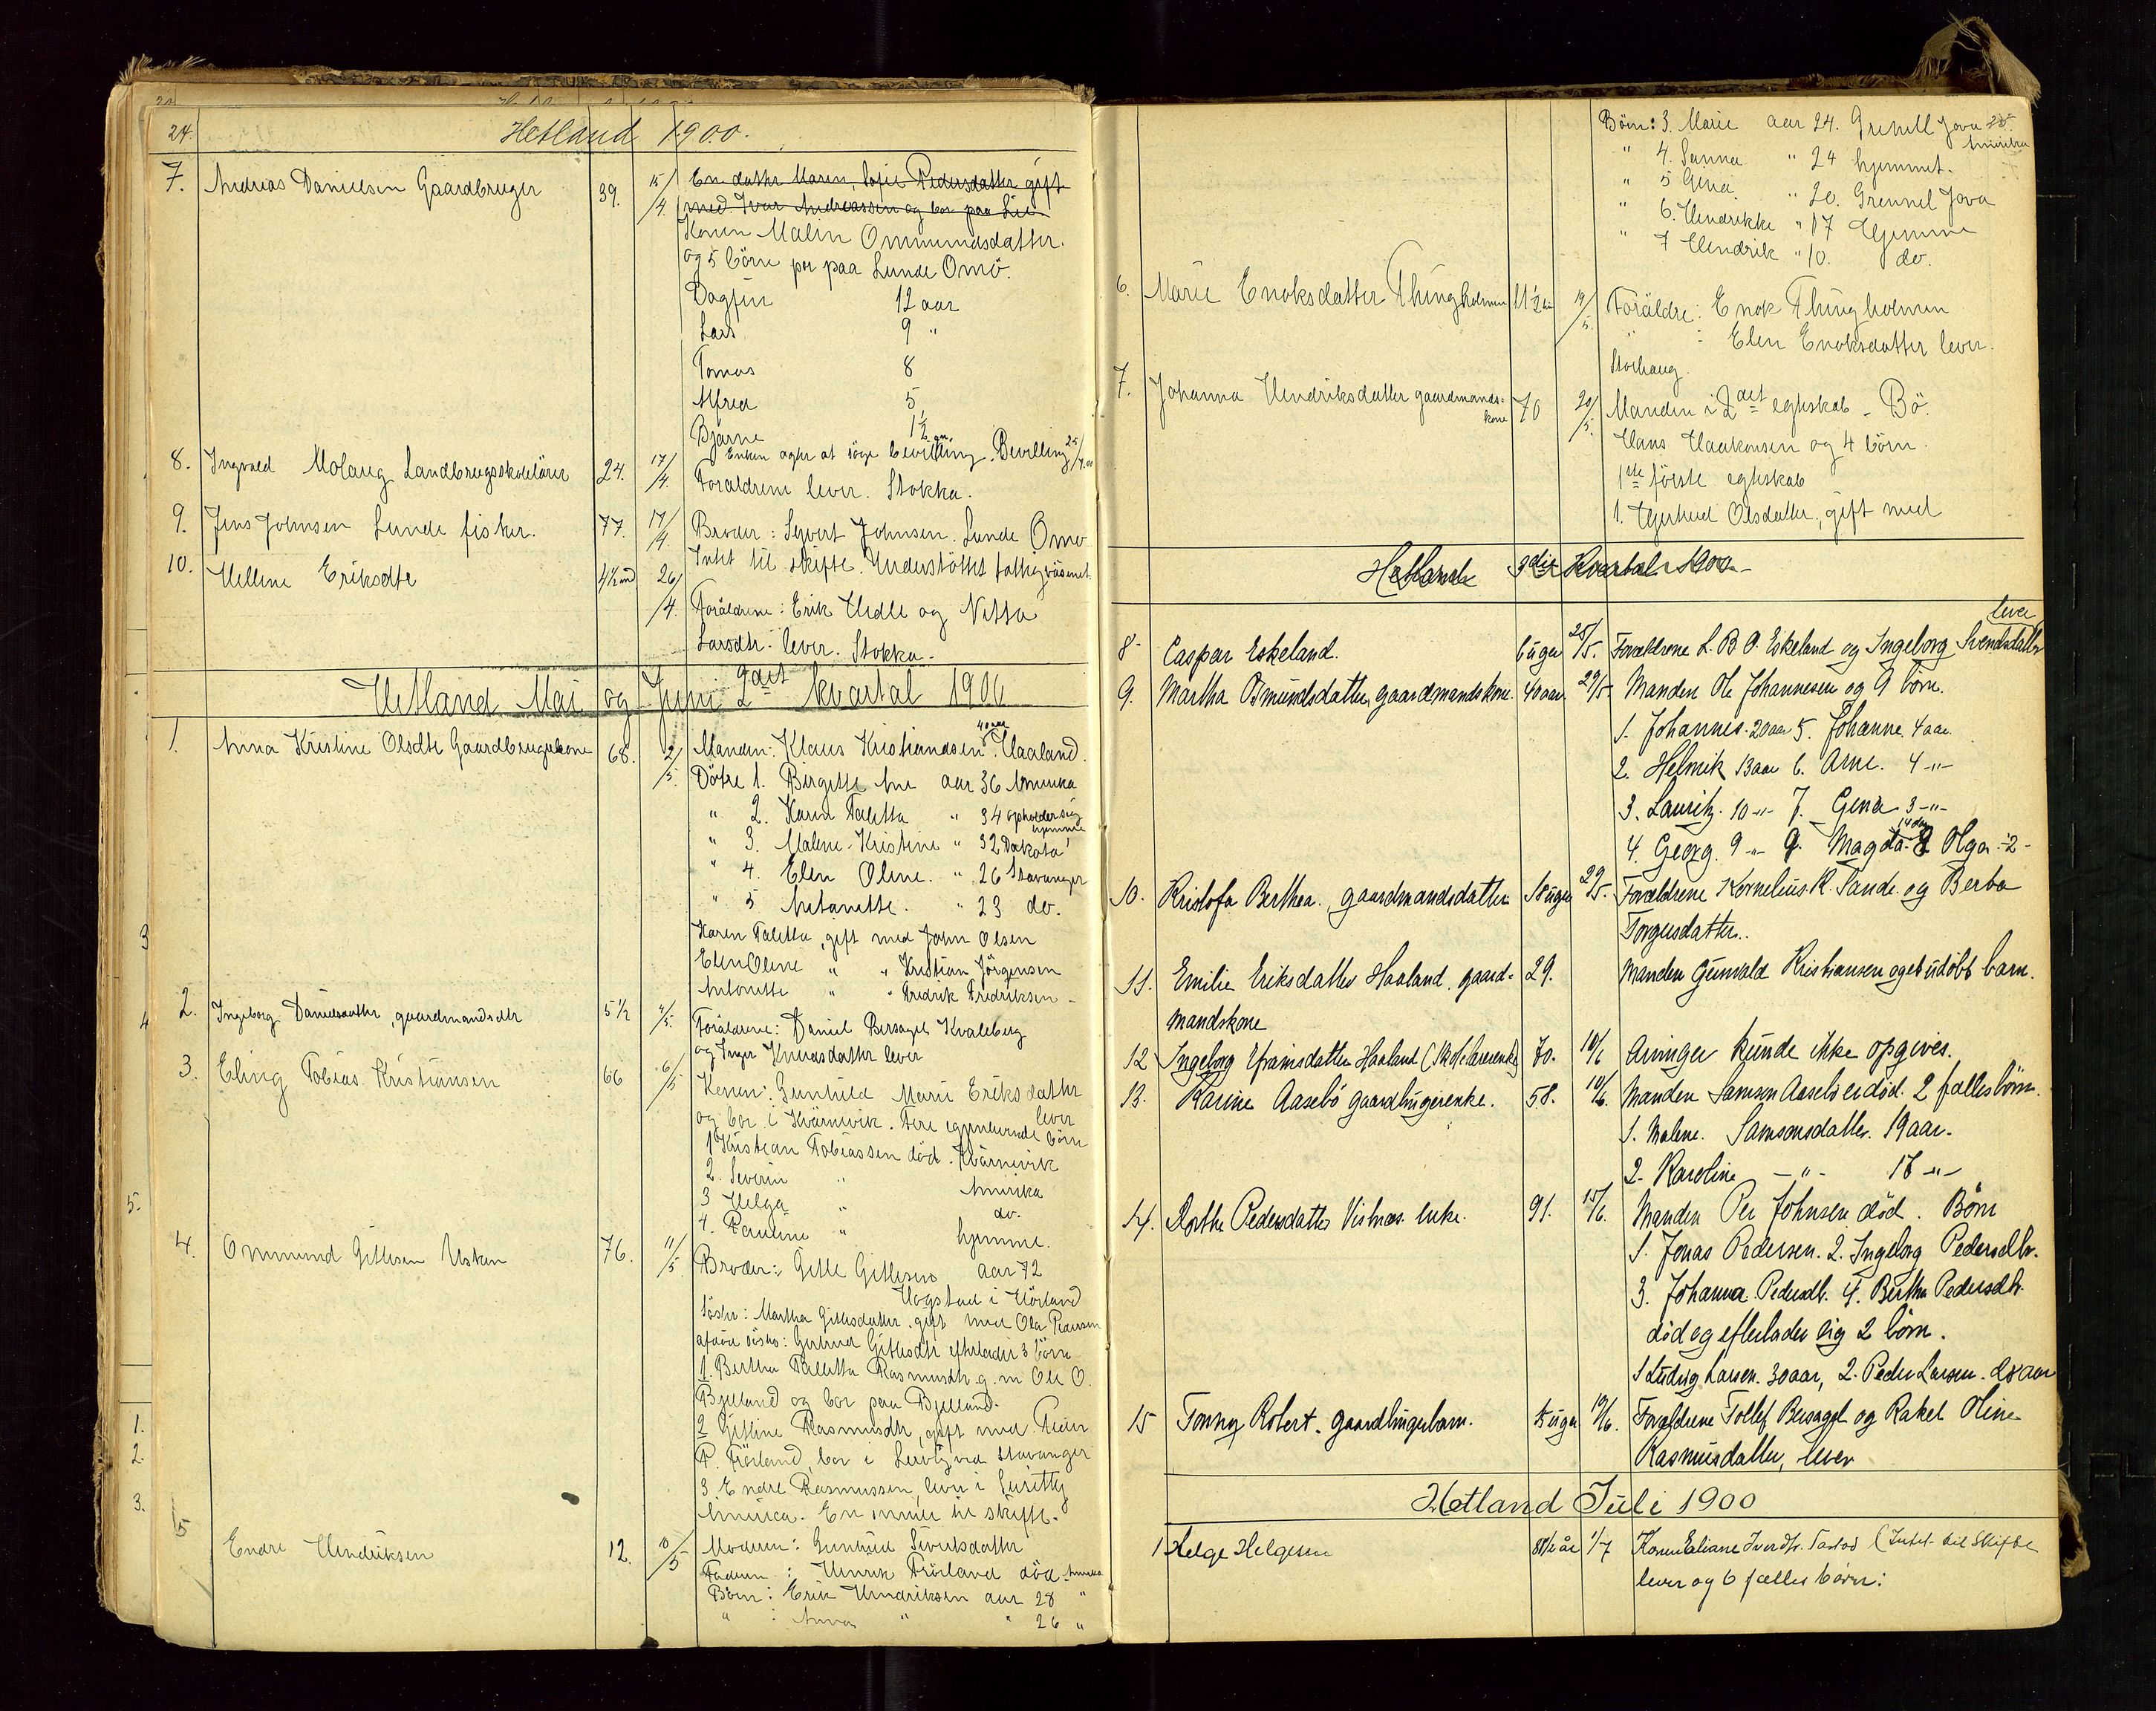 24.
Hetland 1900.
7. Andreas Danielsen Gaardbruger 39. 15/4. En datter Maren, Sofie Pedersdatter gift
med Ivar Andreassen og bor paa Lie.
Konen Malen Ommundsdatter.
og 5 börn por paa Lunde Omö.
Dagfin 12 aar
Lars 9 "
Tomas 8
Alfred 5
Bjarne 1½ aar
Enken agter at söge bevilling. Bevilling 25/4.00
8. Ingvald Molaug Landbrugsskolelärer 24. 17/4. Forældrene lever. Stokka.
9. Jens Johnsen Lunde fisker. 77. 17/4 Broder: Syvert Johnsen. Lunde Omö
Intet til skifte. Understöttet fattigväsenet.
10. Helline Eriksdtr 4½ md 26/4. Foräldrene: Erik Hedle og Netta
Larsdtr. lever. Stokka.
Hetland Mai og Juni 2det kvartal 1900
1. Anna Kristine Olsdtr Gaardbrugerkone 68. 2/5. Manden: Klaus Kristiansen Haaland.
Dötre 1. Birgitte Ane aar 36 Amerika
" 2. Karen Taletta " 34 opholder sig hjemme
" 3. Malene Kristine " 32 Dakota
" 4. Elen Oline. " 26 Stavanger
" 5 Antonette. " 23 do.
Karen Taletta, gift med John Olsen
Elen Oline " " Kristian Jörgensen
Antonette " " Fredrik Fredriksen
2. Ingeborg Danielsdatter, gaardmandsdtr 5½ 4/5. Foräldrene: Daniel Bersagel Kvaleberg
og Inger Knudsdatter lever
3. Eling Tobias Kristiansen 66 6/5 Konen: Gunhild Marie Eriksdatter
og bor i Kvärnevik. Fire egenlevende börn lever
1 Kristian Tobiassen död. Kvärnevik
2. Severin " Amerika
3 Helga " do.
4. Pauline " hjemme.
4. Ommund Gitlesen Usken 76. 11/5 Broder: Gitle Gitlesen aar 72
Hogstad i Hörland
Söster: Martha Gitlesdatter, gift med Ola Pedersen
afdöd söster: Gertrud Gitlesdtr efterlader 3 börn
1. Bertha Taletta Rasmusdtr. g. m Ole O.
Bjelland og bor paa Bjelland.
2 Gitline Rasmusdtr, gift med Peder
P. Förland, bor i Lervig ved Stavanger
3 Endre Rasmussen, lever i
Amerika. En til skifte.
5 Endre Hendriksen 12. 10/5 Moderen: Gunhild Sivertsdatter
Faderen: Henrik Förland död Amerika
Börn: Erik Hendriksen aar 28 "
" : Anna " " 26 "
3
4
5.
1.
2.
3.
Börn: 3. Marie aar 24. Grenell Jova Amerika
" 4. Sanna " 24 hjemmet.
" 5 Gina " 20. Grennel Jova
" 6. Hendrikke " 17 Hjemme
" 7 Hendrik " 10. do.
6. Marie Enoksdatter Thingholmen 11½ 19/5. Foräldre: Enok Thingholmen
" : Elen Enoksdatter lever.
Storhaug.
7. Johanna Hendriksdatter gaardmands-kone 70 20/5. Manden i 2det egteskab - Bö.
Hans Haakonsen og 4 börn.
1ste förste egteskab
1. Gjertrud Olsdatter, gift med
Hetland 3die Kvartal 1900
8 Caspar Eskeland. 6 uger 25/5. Forældrene L. B. O. Eskeland og Ingeborg Svendsdatter lever
9. Martha Osmundsdatter, gaardmandskone. 40 aar. 29/5 Manden Ole Johannesen og 9 børn.
1. Johannes. 20 aar 5. Johanne. 4 aar.
2. Helmik 13 aar 6. Arne. 4 -"-
3. Lauritz. 10 -"- 7. Gena 3 -"-
4. Georg. 9 -"- 9. Magda 14 dg 8 Olga -2-
10. Kristofa Berthea, gaardmandsdatter 18 uger 29/5. Forældrene Kornelius K. Sande og Berta
Torgersdatter.
11. Emilie Eriksdatter Haaland, gaard- 29. Manden Gunvald Kristiansen og et udöbt barn.
mandskone
12 Ingeborg Efraimsdatter Haaland (Skolelærerenke) 70. 10/6 Arvinger kunde ikke opgives.
13. Karine Aasebö gaardbrugerenke. 58. 10/6. Manden Samson Aasebö er död. 2 fælles börn.
1. Malene. Samsonsdatter. 19 aar.
2. Karoline -"- 18 -"-
14. Dorthe Pedersdatter Vistnæs. enke. 91. 15/6. Manden Per Johnsen död. Børn
1. Jonas Pedersen. 2. Ingeborg Pedersdtr.
3. Johanna Pedersdtr. 4. Bertha Pedersdtr.
död og efterlader sig 2 börn.
1 Ludvig Larsen. 30 aar, 2. Peder Larsen. 28 aar
15 Tonny Robert. gaardbrugerbarn. 5 uger 19/6. Forældrene Tollef Bersagel og Rakel Oline
Rasmusdatter, lever
Hetland Juli 1900
1 Helge Helgesen 88½ år 1/7 Konen Eliane Iversdtr. Tastad (Intet til skifte
lever og 6 fælles børn: